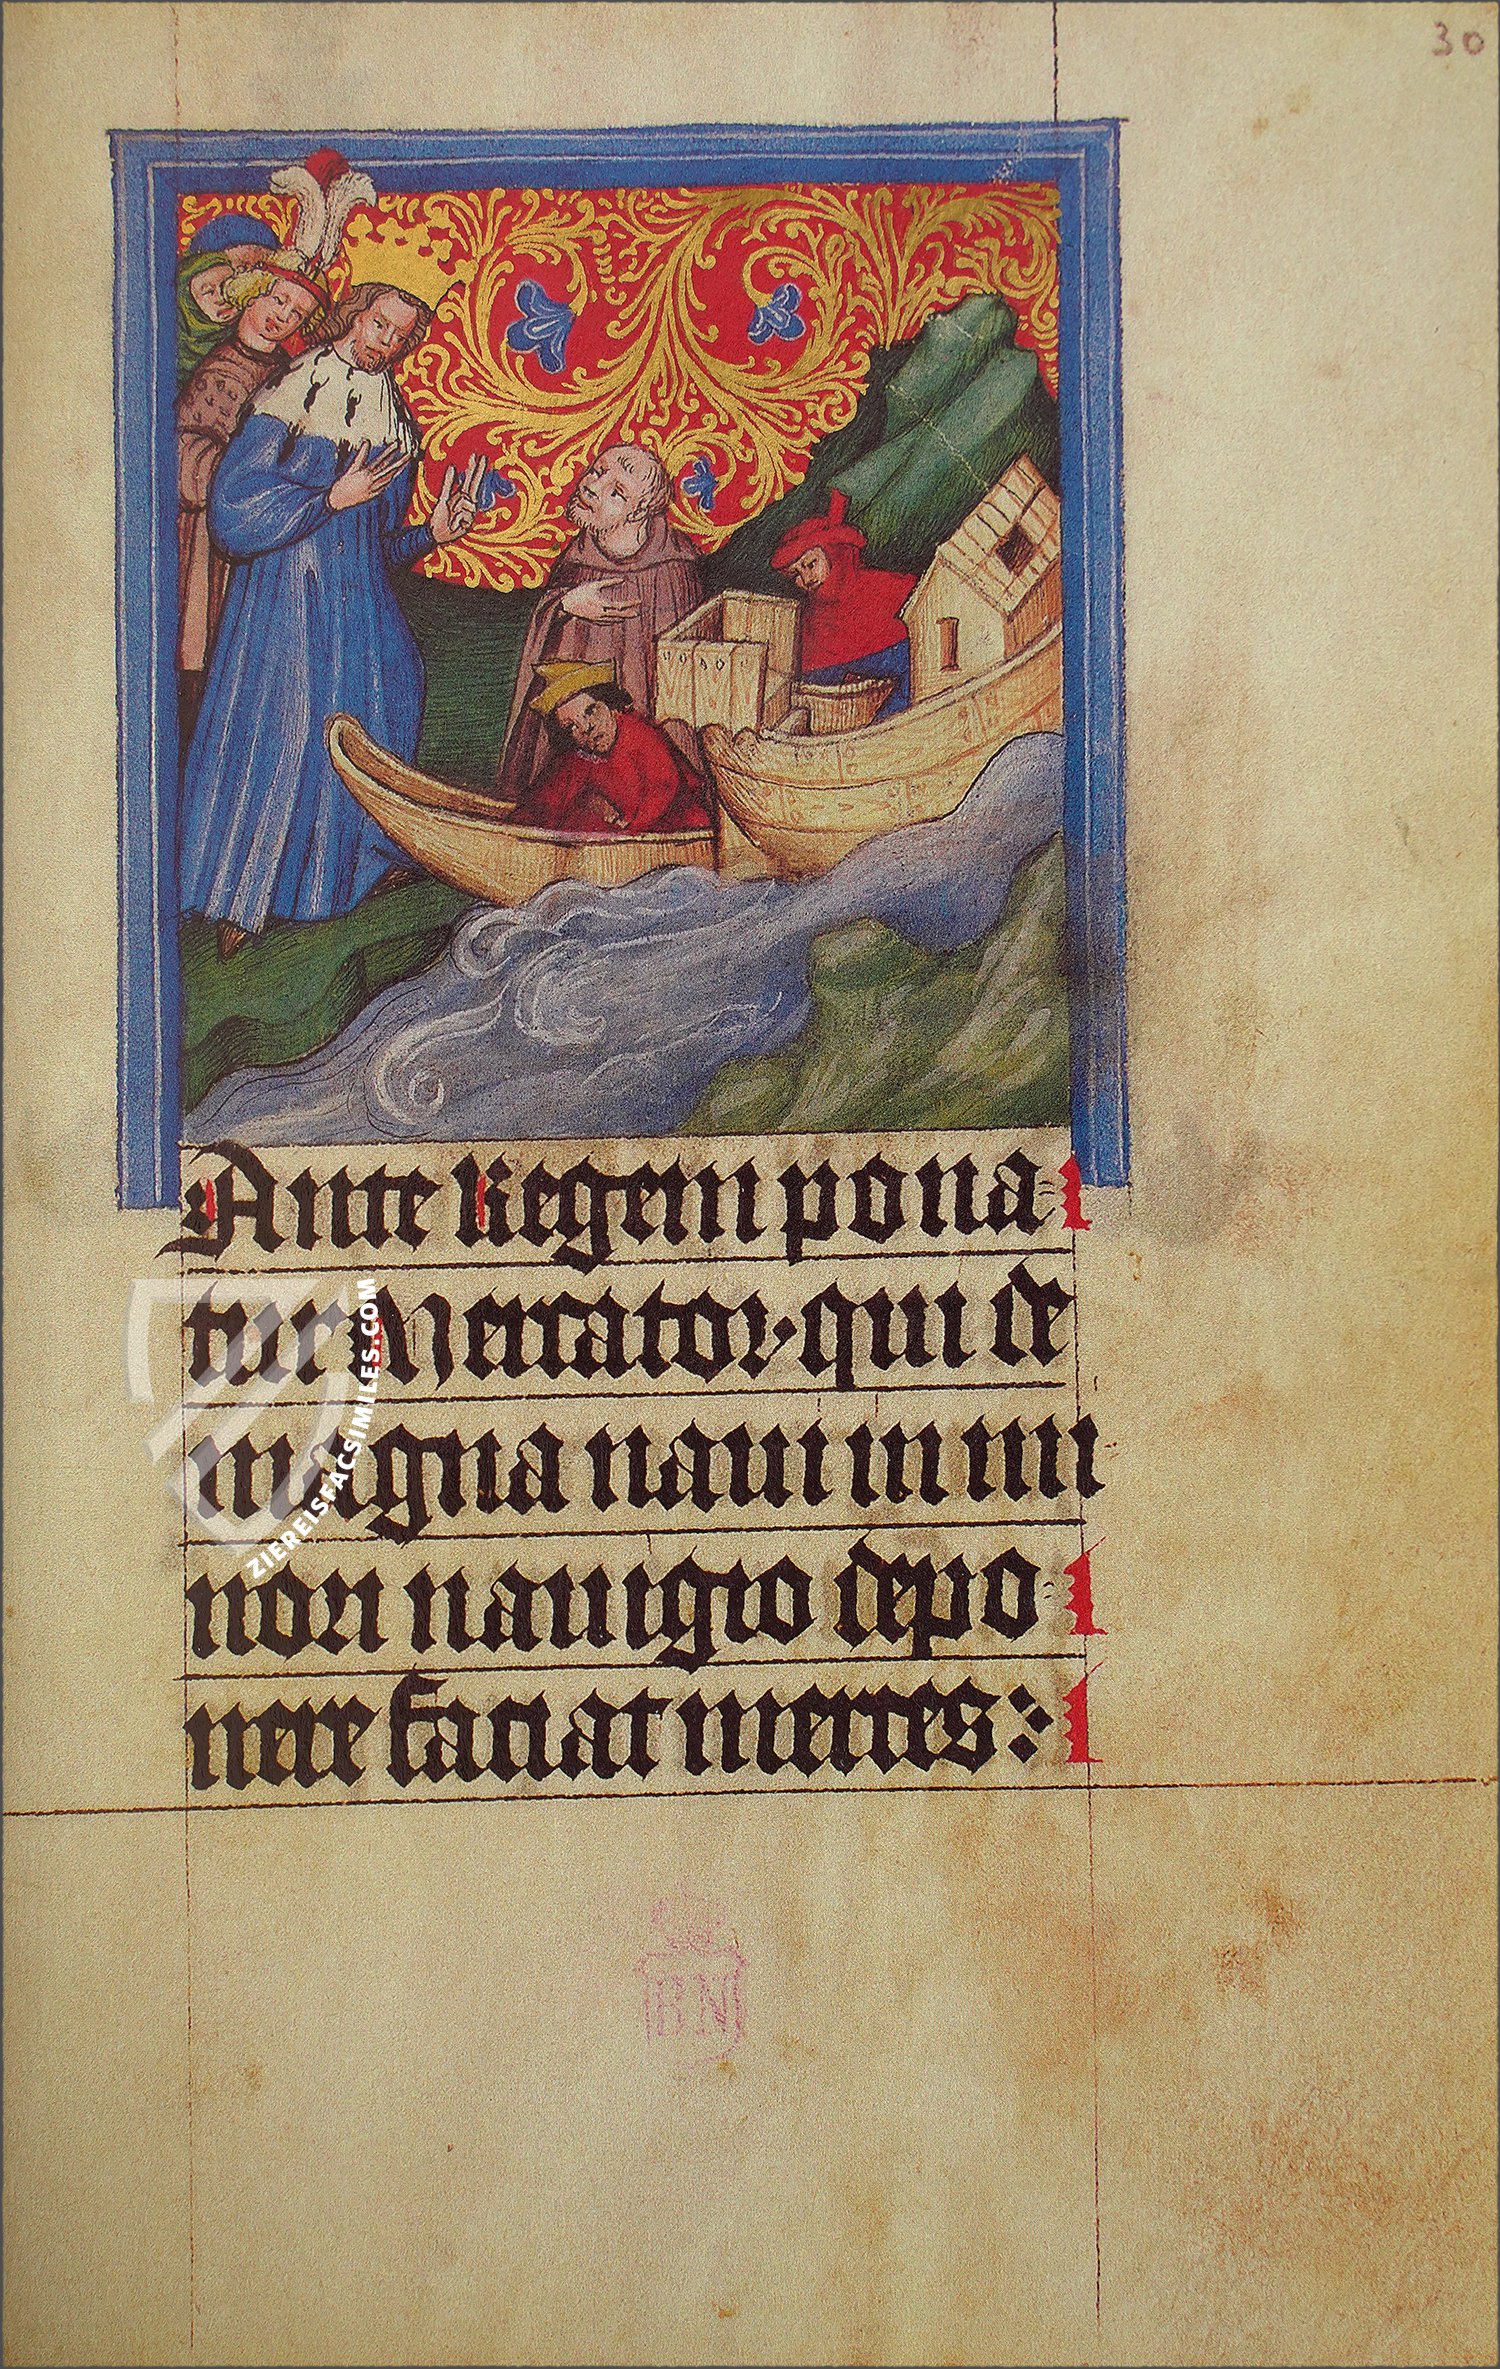 30
Ante Regem pona=
tur Mercator· qui de
magna naui in mi
nori nauigio depo=
nere faciat merces:
ZIEREISFACSIMILES.COM
BN